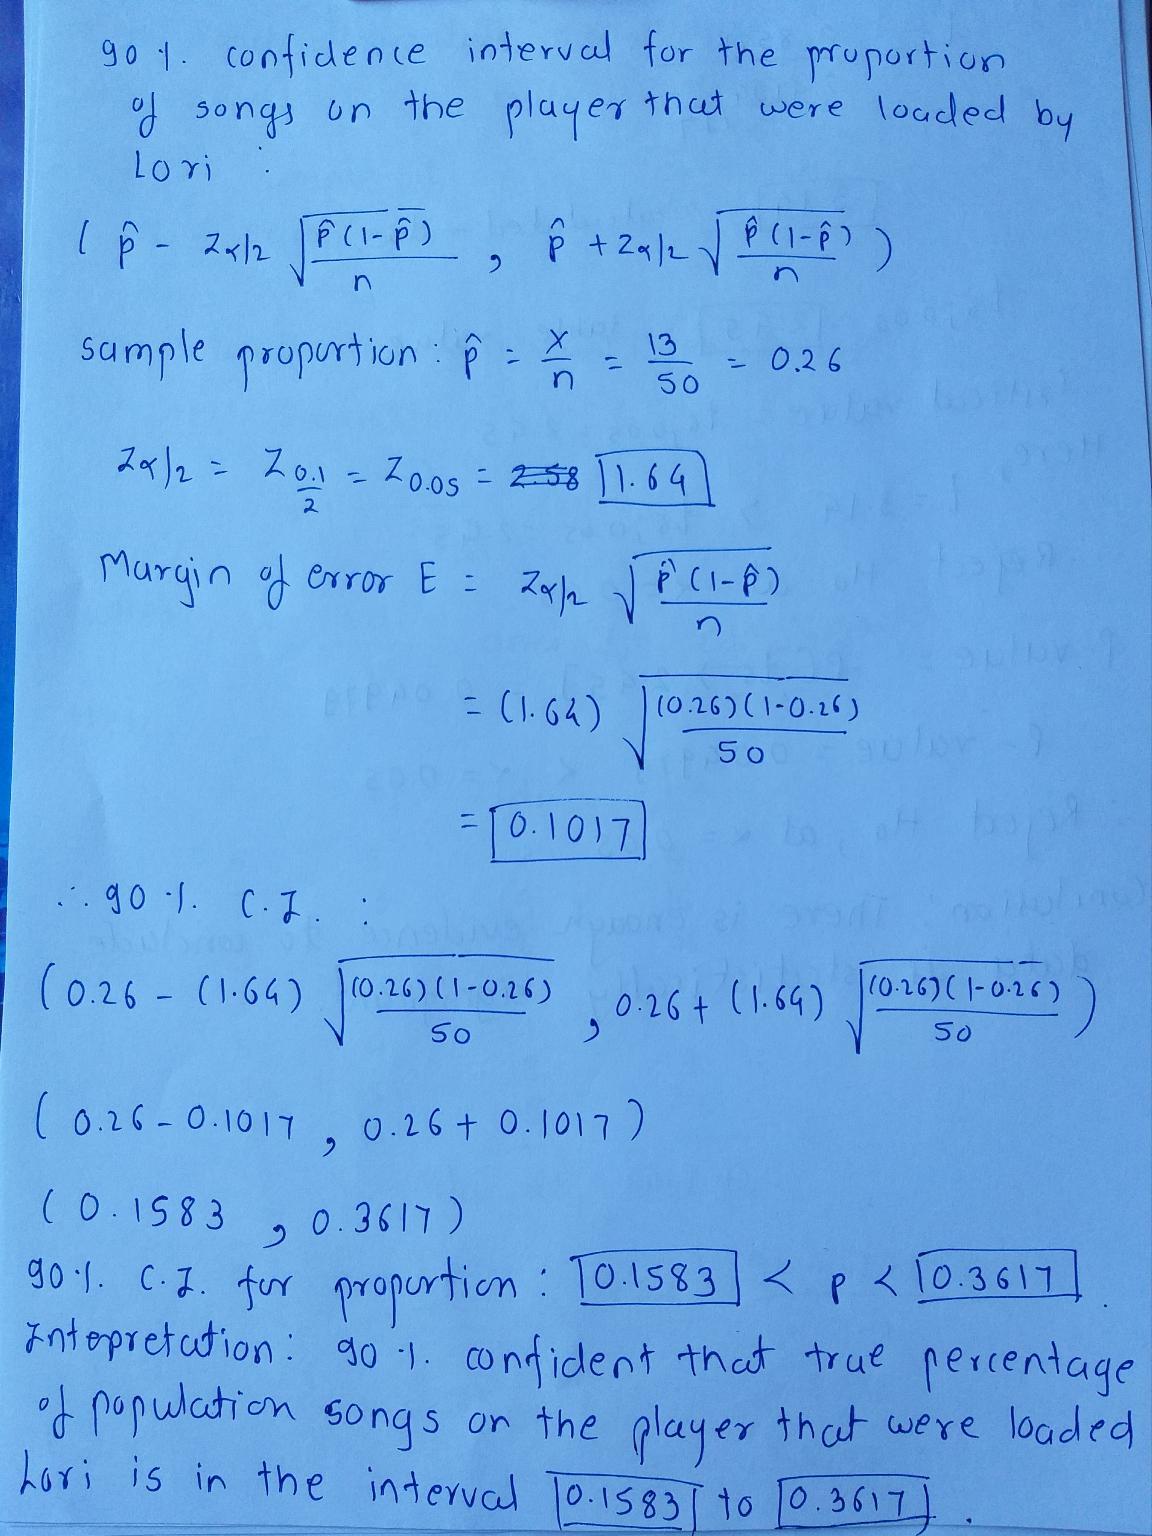 90 %. confidence interval for the proportion
of songs on the player that were loaded by
Lori :
( p̂ - Zα/2 √(p̂(1-p̂)/n) , p̂ + Zα/2 √(p̂(1-p̂)/n) )
sample proportion : p̂ = x/n = 13/50 = 0.26
Zα/2 = Z0.1/2 = Z0.05 = 2.58 1.64
Margin of error E = Zα/2 √(p̂(1-p̂)/n)
= (1.64) √((0.26)(1-0.26)/50)
= 0.1017
∴ 90 %. C.I. :
(0.26 - (1.64) √((0.26)(1-0.26)/50) , 0.26 + (1.64) √((0.26)(1-0.26)/50) )
( 0.26 - 0.1017 , 0.26 + 0.1017 )
( 0.1583 , 0.3617 )
90 %. C.I. for proportion : 0.1583 < p < 0.3617 .
Intepretation : 90 %. confident that true percentage
of population songs on the player that were loaded
Lori is in the interval 0.1583 to 0.3617 .